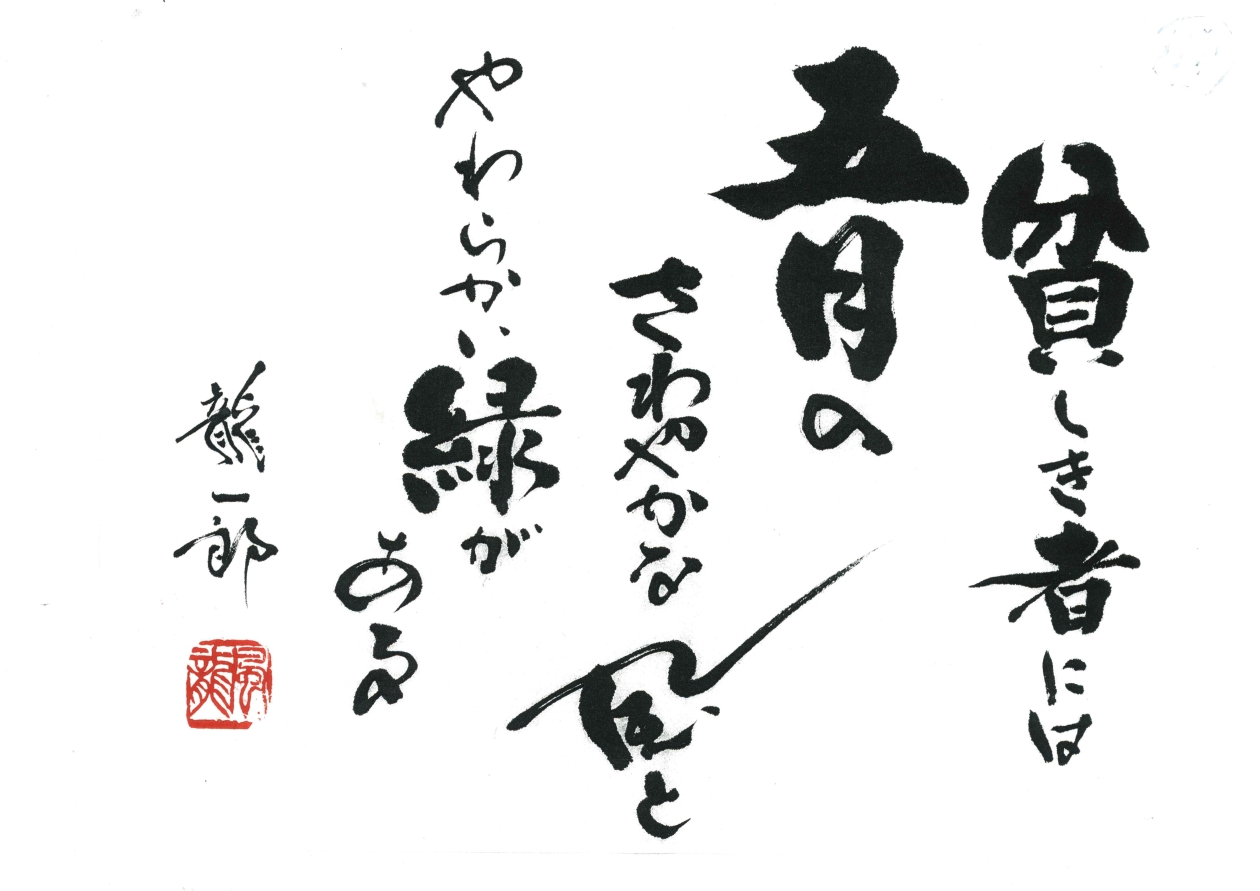 貧しき者には
五月の
さわやかな風と
やわらかい緑が
ある
龍一郎
風龍